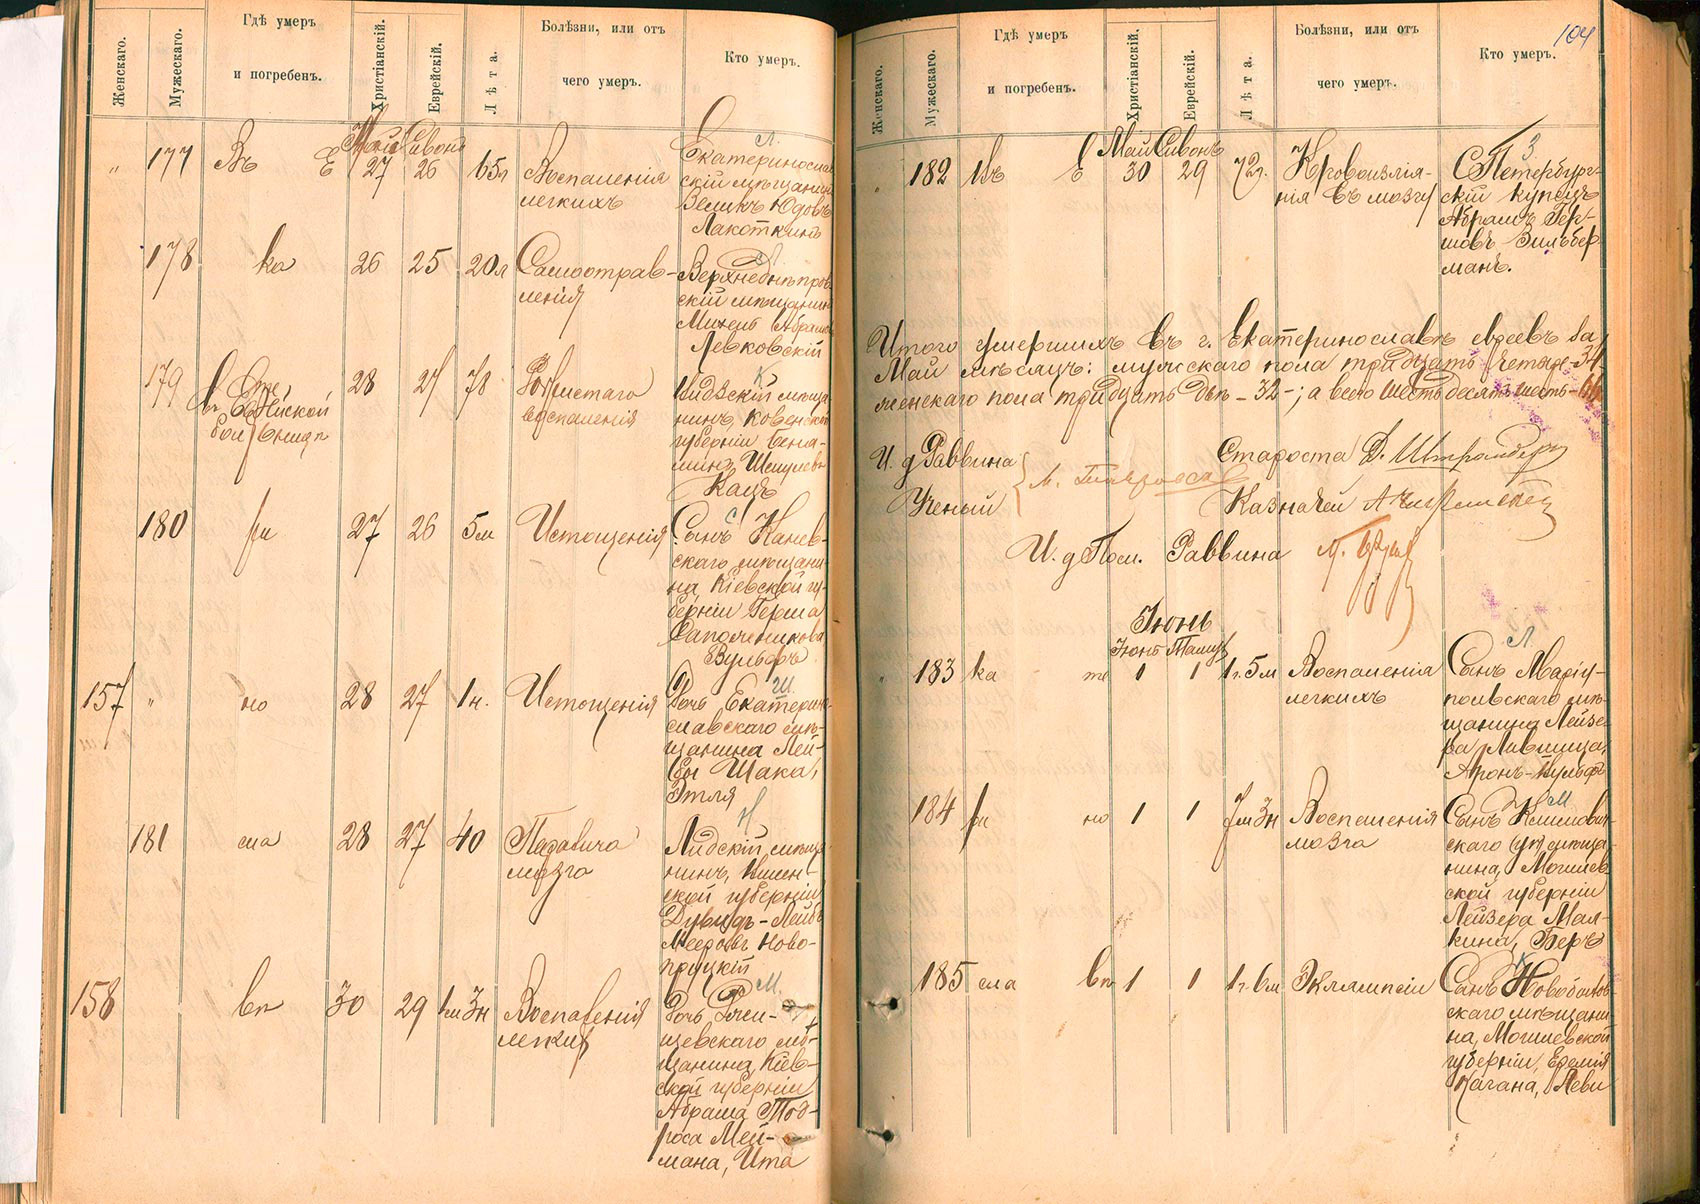 Женскаго.
Мужескаго.
Гдѣ умеръ
и погребенъ.
Христіанскій.
Еврейскій.
Лѣта.
Болѣзни, или отъ
чего умеръ.
Кто умеръ.
Май Сивонъ
" 177 Въ Е 27 26 65л Воспаленія
легкихъ
Л.
Екатеринослав
скій мѣщанинъ
Юдовъ
Лакоткинъ
178 ка 26 25 20л Самоотрав-
ленія
Верхнеднѣпров
скій мѣщанинъ
Абрамовъ
Левковскій
179 28 27 78
воспаленія
К
нинъ, Ковенской
губерніи Веніа-
минъ
Кацъ
180 ри 27 26 5м Истощенія
С
Сынъ Канев-
скаго мѣщани-
на, Кіевской гу-
берніи Герша
Сапожникова
Вульфъ
157 " но 28 27 1н. Истощенія
Ш.
Дочь Екатерино-
славскаго мѣ-
щанина Лей-
бы Шака,
Этля
181 сла 28 27 40 Паралича
мозга
Н
Лидскій мѣща-
нинъ, Вилен-
ской губерніи
Лейба
Мееровъ Ново-
пруцкій
158 вѣ 30 29 1м 3н Воспаленія
легких
М.
Дочь
щевскаго мѣ-
щанина Кіев-
ской губерніи
Абрама Тод-
роса Мей-
мана, Ита
104
Женскаго.
Мужескаго.
Гдѣ умеръ
и погребенъ.
Христіанскій.
Еврейскій.
Лѣта.
Болѣзни, или отъ
чего умеръ.
Кто умеръ.
Май Сивонъ
" 182 Въ Е 30 29 72г. Кровоизлія-
нія въ мозгу
З
СПетербург-
скій купецъ
Абрамъ Гер-
шовъ Зильбер
манъ.
Итого умершихъ въ г. Екатеринославѣ евреевъ за
Май мѣсяцъ: мужскаго пола тридцать четыре -34-
женскаго пола тридцать двѣ -32-; а всего шестьдесятъ шесть -66
И. д Раввина
Ученый
Староста Д.
Казначей А
И. д Пом. Раввина
Іюнь
Іюнь Тамуз
" 183 ка те 1 1 1г. 5м Воспаленія
легкихъ
Л
Сынъ Маріу-
польскаго мѣ-
щанина Лейзе-
ра Лившица,
Аронъ-Вульфъ
184 ри но 1 1 7м 3н Воспаленія
мозга
М
Сынъ Климович-
скаго мѣща-
нина, Могилев
ской губерніи
Лейзера Мал-
кина, Беръ
185 сла вѣ 1 1 1г. 6м Эклампсіи
К
Сынъ
скаго мѣщани-
на, Могилевской
губерніи,
Кагана, Леви